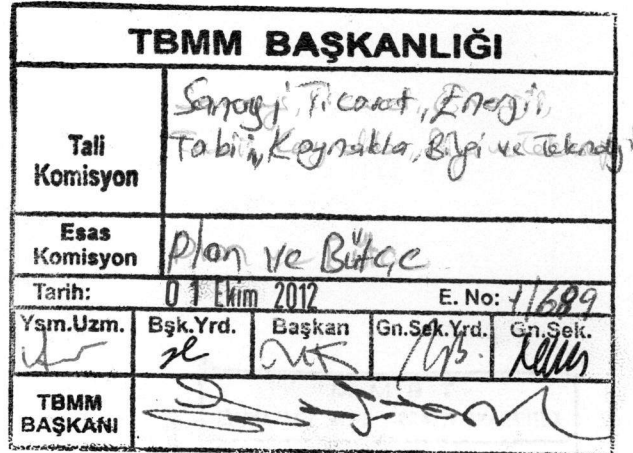 TBMM BAŞKANLIĞI
Tali Komisyon
Sanayi, Ticaret, Enerji,
Tabii, Kaynaklar, Bilgi ve Teknoloji
Esas Komisyon
Plan ve Bütçe
Tarih: 01 Ekim 2012 E. No: 1/689
Ysm.Uzm. Bşk.Yrd. Başkan Gn.Sek.Yrd. Gn.Sek.
TBMM BAŞKANI